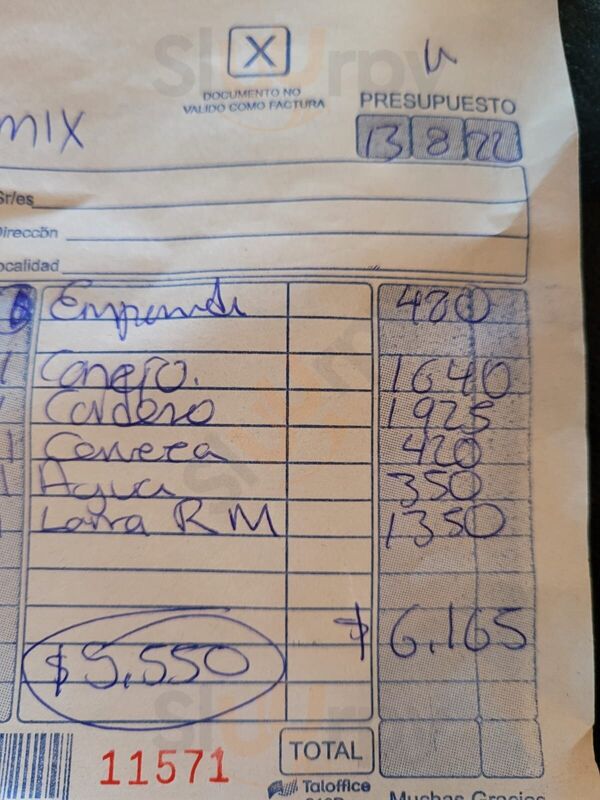 X
DOCUMENTO NO
VALIDO COMO FACTURA
PRESUPUESTO
MIX
13 8 22
Sr/es
Dirección
ocalidad
420
1 Conejo. 1640
1 Cordero 1925
1 Cerveza 420
1 Agua 350
1 RM 1350
$ 6.165
$5.550
11571
TOTAL
Taloffice
Muchas Gracias
Slurrpy